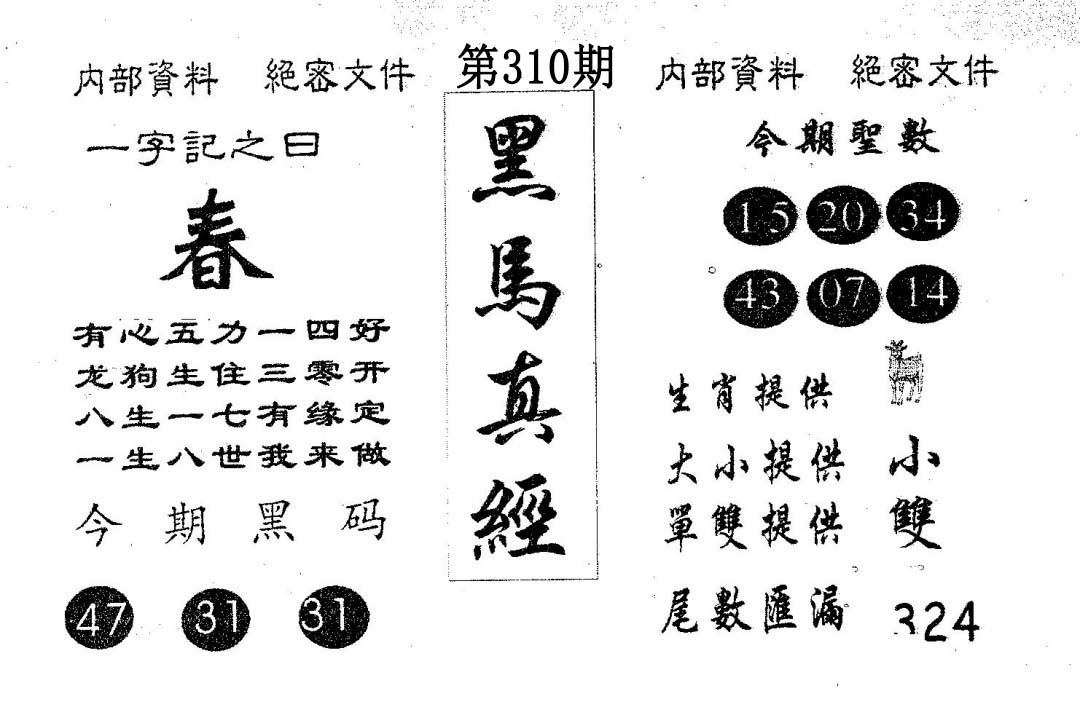 第310期
内部資料 絕密文件
一字記之曰
春
有心五力一四好
龙狗生住三零开
八生一七有缘定
一生八世我来做
今期黑码
47 31 31
黑馬真經
内部資料 絕密文件
今期聖數
15 20 34
43 07 14
生肖提供
大小提供 小
單雙提供 雙
尾數匯漏 324